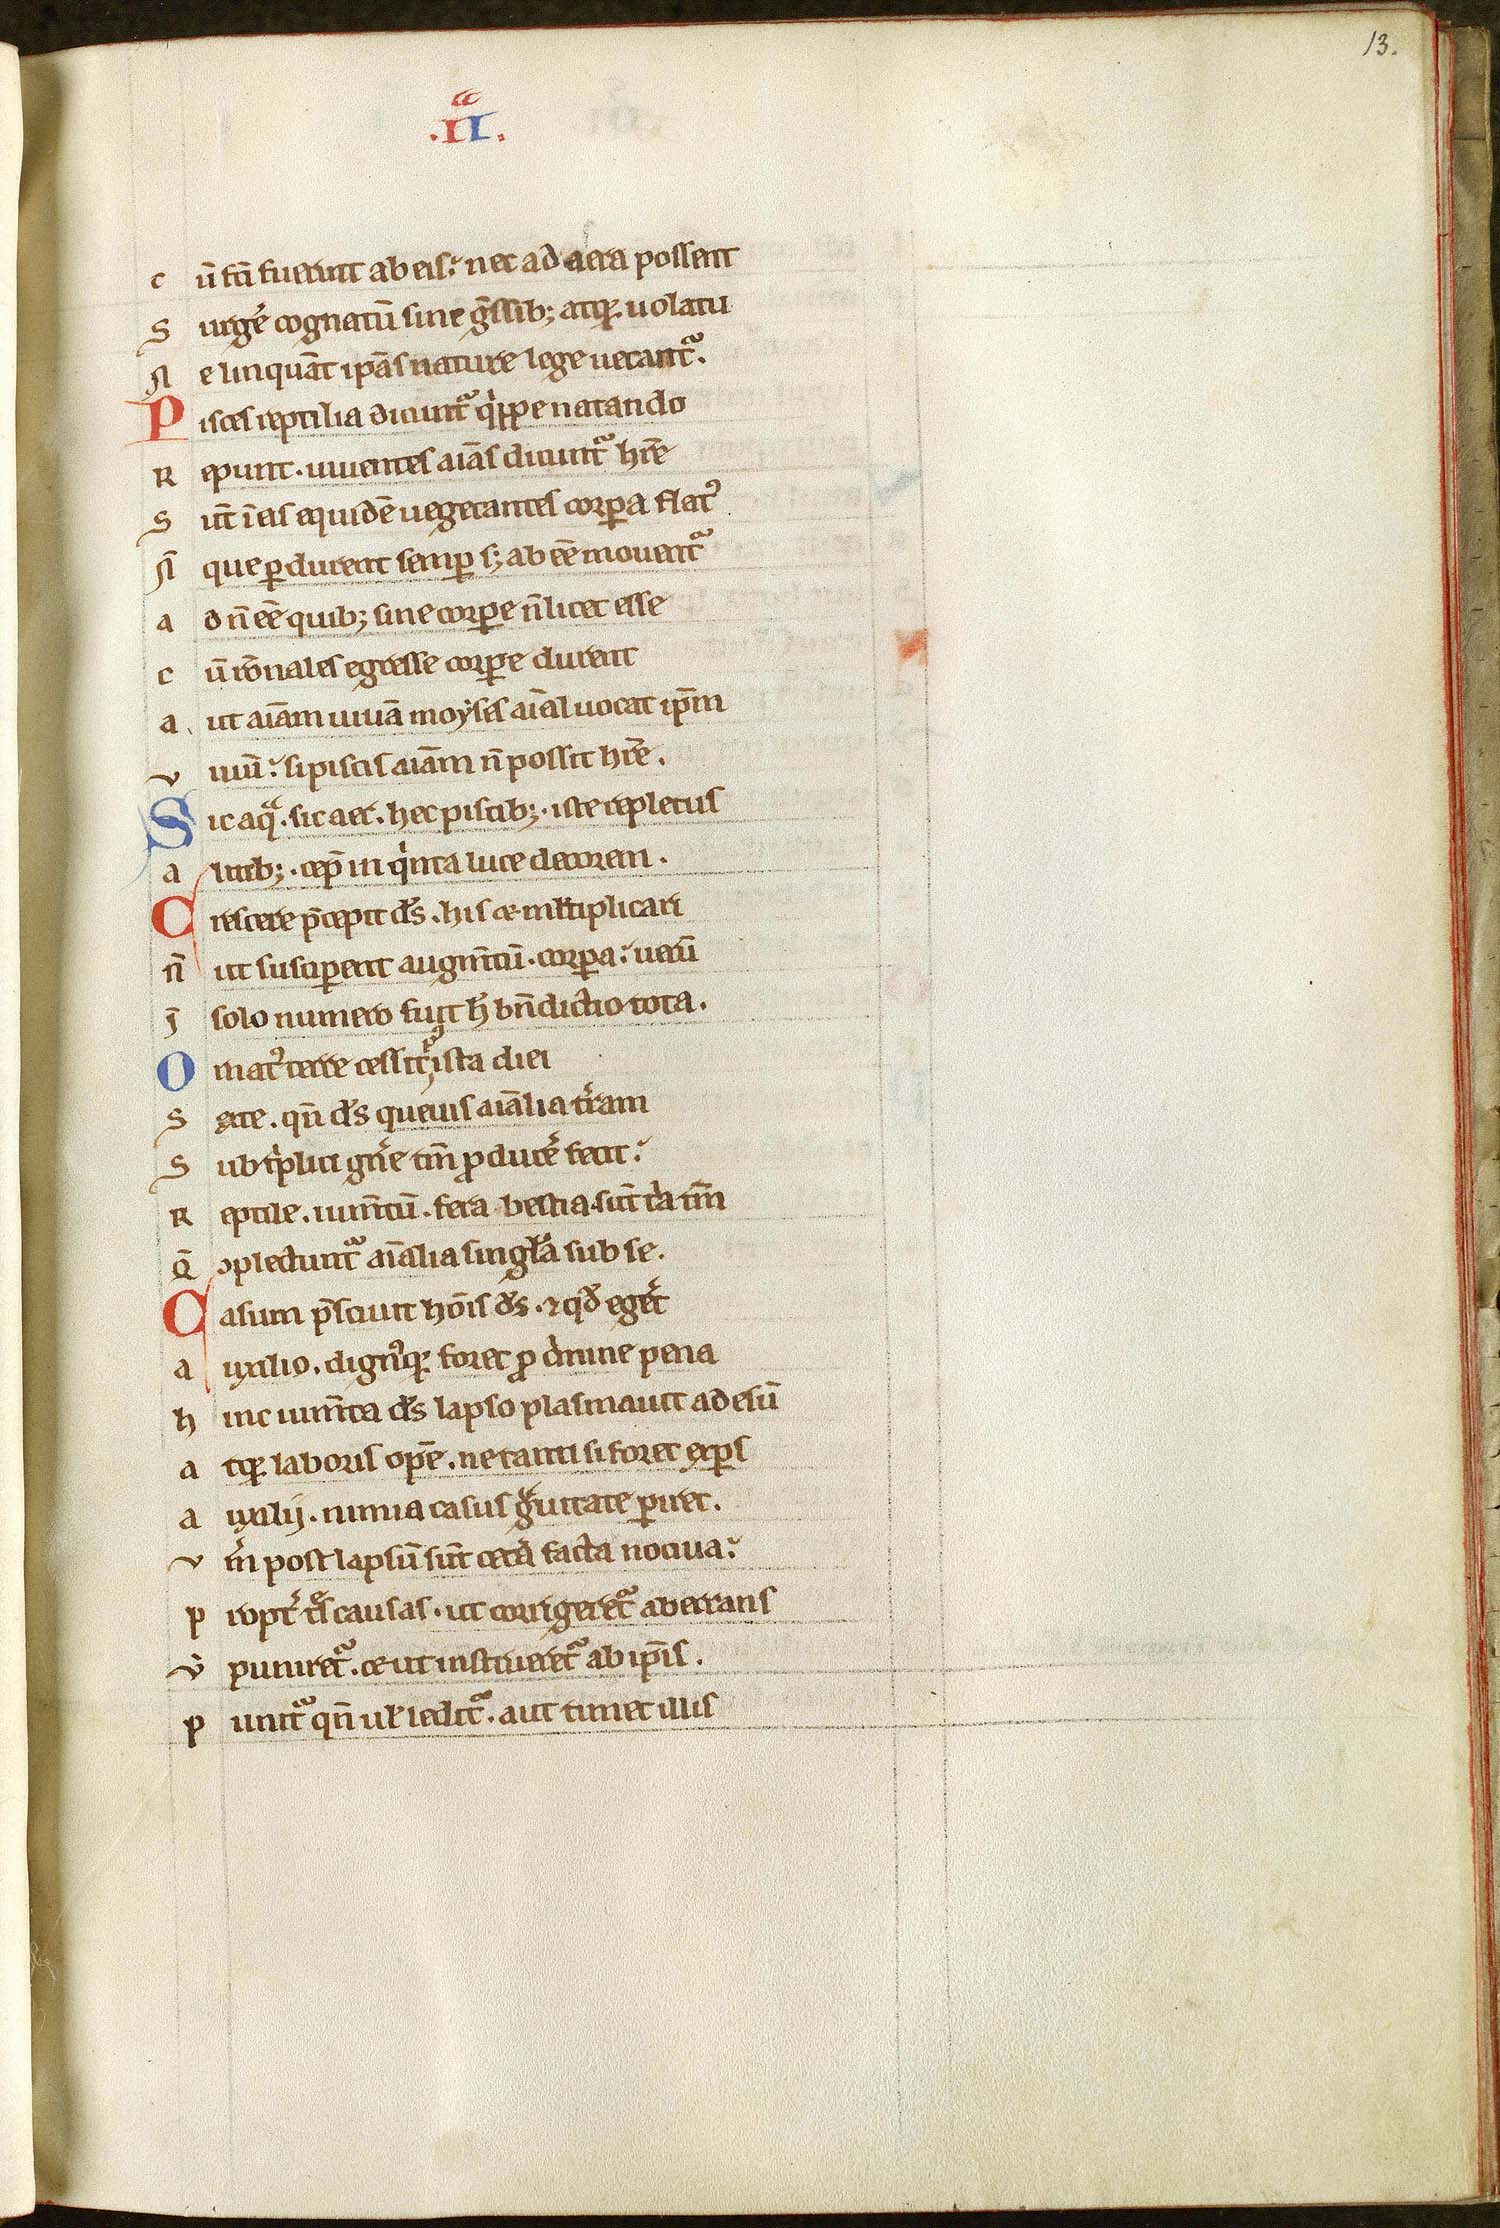 13.
.II.
c ū fcī fuerunt ab eis. nec ad aera possent
S urgē cognatū sine g̃ssib; atq; uolatu
N e linquāt ip̄as nature lege uetantᷣ.
P isces reptilia dicuntᷣ qͥppe natando
R epunt. uiuentes aīas dicuntᷣ hr̄e
S ūt ī eis equidē uegetantes corꝑa flatꝰ
N̄ que ꝑdurent semꝑ s; ab eē mouentᷣ
a d n̄ eē quib; sine corꝑe n̄ licet esse
c ū rōnales egresse corꝑe durent
a ut aīam uiuā moyses aīal uocat ip̄m
v iuū. si piscis aīam n̄ possit hr̄e.
S ic aqͣ. sic aer. hec piscib;. iste repletus
a litib;. cep̄ in qͥnta luce decorem.
C rescere p̄cepit d̄s. his et ml̄tiplicari
n̄ ut susciꝑent augm̄tū. corꝑa. uerū
J̄ solo numero fuit h̄ bn̄dictio tota.
O rnatꝰ terre cessit ista diei
S exte. qn̄ d̄s queuis aīalia t̄ram
S ub tͥplici gn̄e tm̄ ꝓducē fecit.
R eptile. iumn̄tū. fera bestia. sūt tͥa tm̄
Q̄ ꝯplectuntᷣ aīalia singl̄a sub se.
C asum p̄sciuit hōis d̄s. ⁊ qd̄ eget
a uxilio. dignꝰq; foret ꝓ cͥmine pena
h inc iumn̄ta d̄s lapso plasmauit ad esū
a tq; laboris opē. ne tanti si foret exꝑs
a uxilii. nimia casus gͣuitate ꝑiret.
v̄ m̄ post lapsū sūt cetͣ facta nociua.
p ropt̄ tͤs causas. ut corrigeretᷣ aberrans
v̄ puniretᷣ. et ut instrueretᷣ ab ip̄is.
p unitᷣ qn̄ ul̄ leditᷣ. aut timet illis